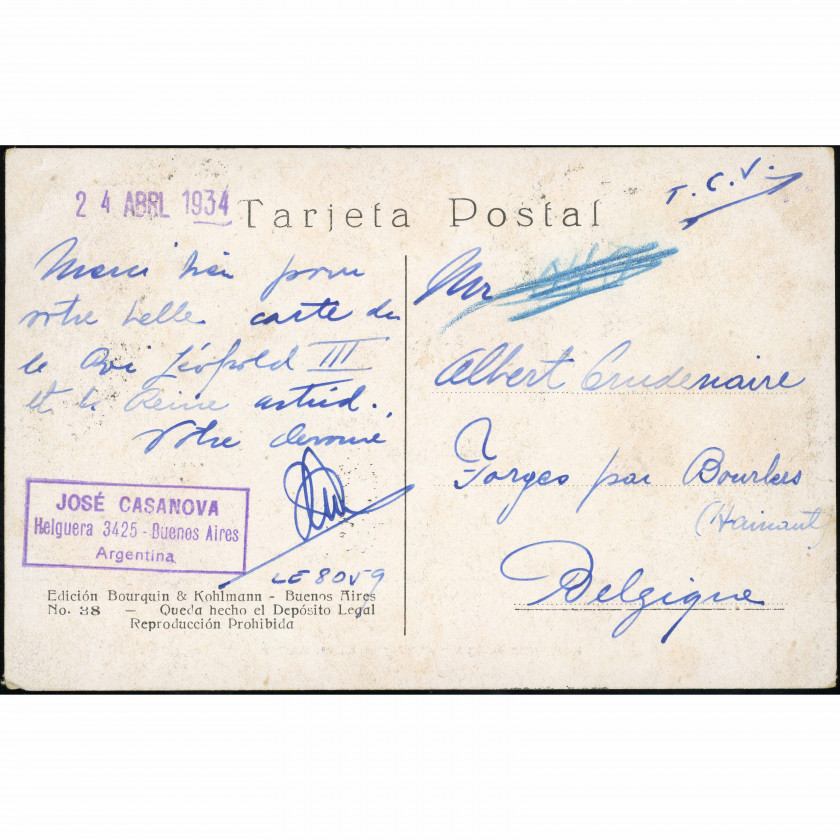 24 ABRL 1934
Tarjeta Postal
T.C.V.
Merci bien pour
votre belle carte du
le Roi Léopold III
et la Reine astrid.
Votre dévoué
JOSÉ CASANOVA
Helguera 3425 - Buenos Aires
Argentina
LE 8059
Edición Bourquin & Kohlmann - Buenos Aires
No. 38 — Queda hecho el Depósito Legal
Reproducción Prohibida
Mr
Albert Crudenaire
Forges par Bourlers
(Hainaut)
Belgique